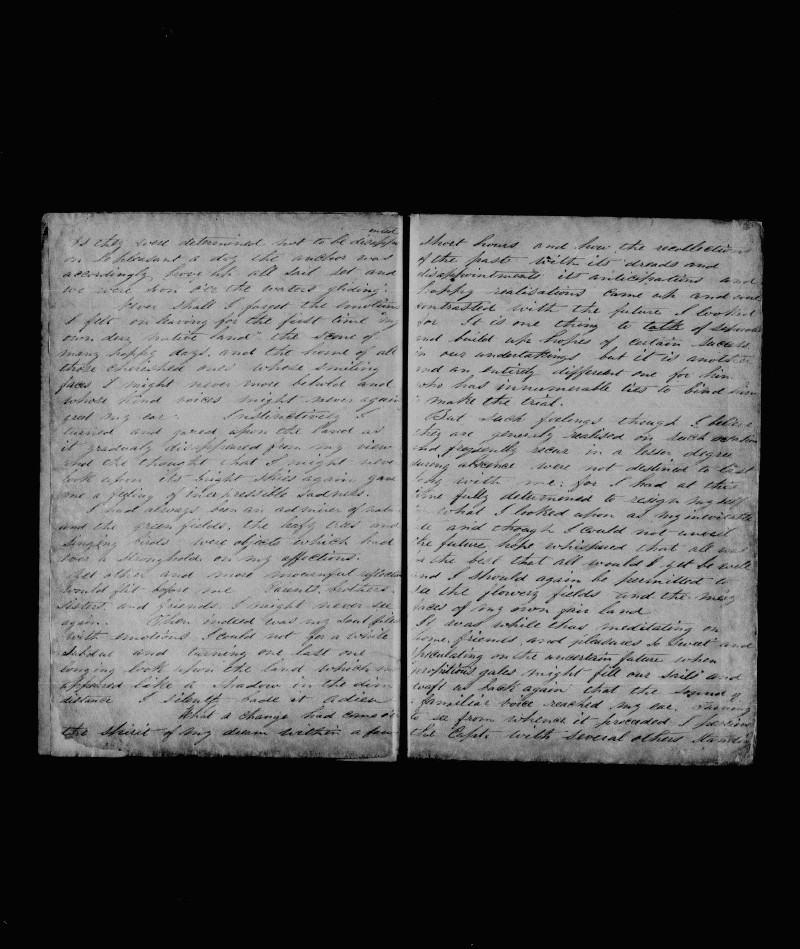 As they were determined not to be disapp
ointed
on so pleasant a day the anchor was
accordingly hove up all sail set and
we were soon o'er the waters gliding.
Never shall I forget the emotions
I felt on leaving for the first time "my
own dear native land" the scene of
many happy days, and the home of all
those cherished ones whose smiling
faces I might never more behold and
whose kind voices might never again
greet my ear. Instinctively I
turned and gazed upon the land as
it gradualy disappeared from my view
and the thought that I might never
look upon its bright skies again gave
me a feeling of inexpressible sadness.
I had always been an admirer of natu
and the green fields, the lofty trees and
singing birds were objects which had
ever a stronghold on my affections.
Yet other and more mournful reflection
would flit before me Parents, brothers
sisters and friends I might never see
again. Then indeed was my soul filled
with emotions I could not for a while
subdue and turning one last one
longing look upon the land which now
appeared like a shadow in the dim
distance I silently bade it adieu
What a change had come o'er
the spirit of my dream within a few
short hours and how the recollections
of the past with its dreads and
disappointments its anticipations and
happy realisations came up and were
contrasted with the future I looked
for. It is one thing to talk of
and build up hopes of certain success
in our undertakings but it is another
and an entirely different one for him
who has innumerable ties to bind him
to make the trial.
But such feelings though I believe
they are generily realised on such occasions
and frequently recur in a lesser degree
during absence were not destined to last
long with me: for I had at this
time fully determined to resign myself
to what I looked upon as my inevitable
and though I could not unveil
the future, hope whispered that all was
for the best that all would I yet be well
and I should again be permitted to
see the flowery fields and the
faces of my own fair land
It was while thus meditating on
home, friends, and pleasures so sweet and
speculating on the uncertain future when
propitious gales might fill our sails and
waft us back again that the sound of
a familiar voice reached my ear. Turning
to see from whence it proceded I percieved
the Capt. with several others standing